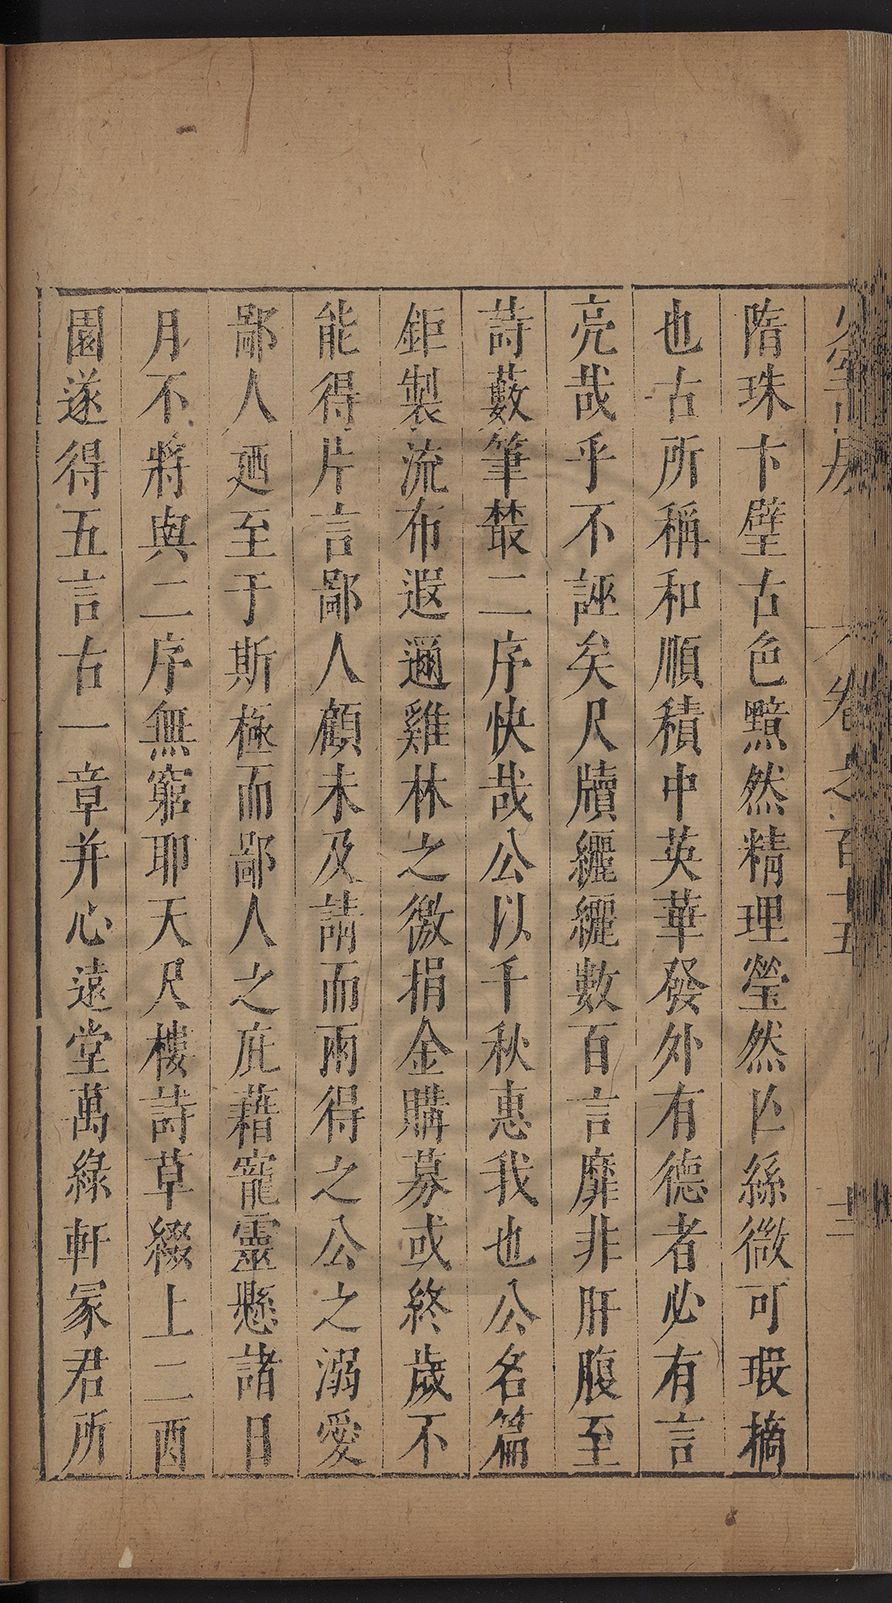 隋珠卞璧古色黯然精理瑩然亡絲微可瑕摘
也古所稱和順積中英華發外有德者必有言
亮哉乎不誣矣尺牘纚纚數百言靡非肝腹至
詩藪筆叢二序快哉公以千秋惠我也公名篇
鉅製流布遐邇雞林之徼捐金購募或終歲不
能得片言鄙人顧未及請而兩得之公之溺愛
鄙人廼至于斯極而鄙人之庇藉寵靈懸諸日
月不將與二序無窮耶天尺樓詩草綴上二酉
園遂得五言古一章并心遠堂萬綠軒冢君所
卷之百十五